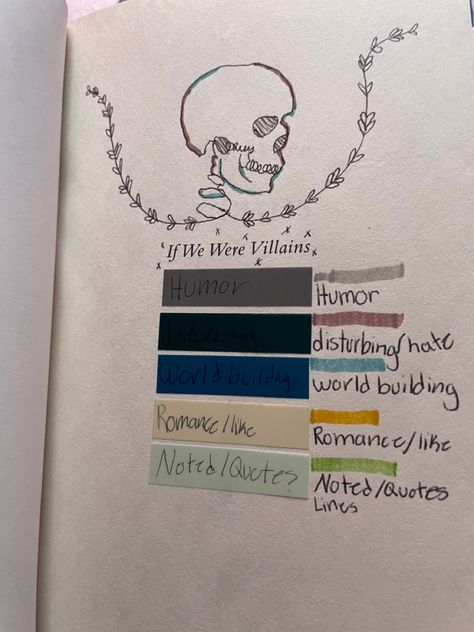 'If We Were Villains
Humor
Humor
disturbing
disturbing/hate
World building
world building
Romance/like
Romance/like
Noted/Quotes
Noted/Quotes
Lines